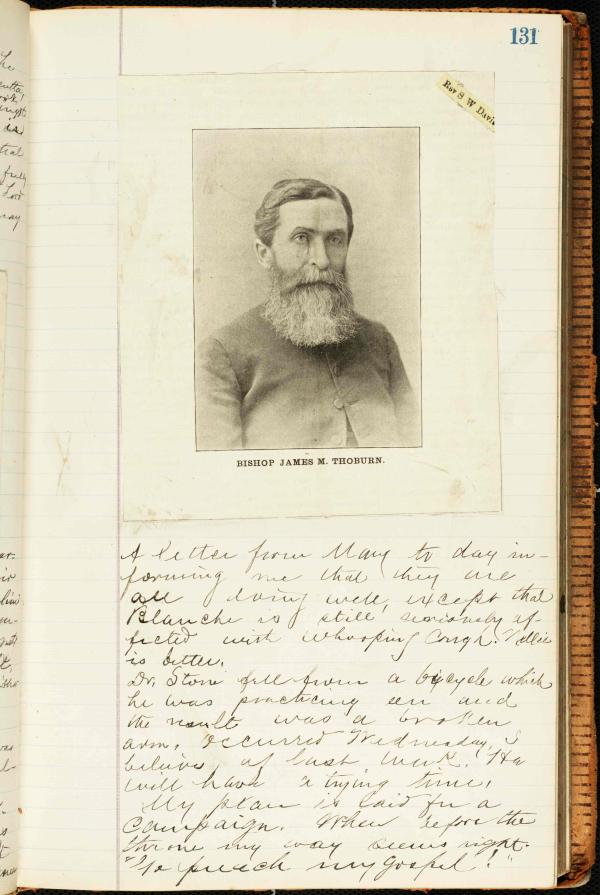 131
Rev S W Davi
BISHOP JAMES M. THOBURN.
A letter from Mary to day in-
forming me that they are
all doing well, except that
Blanche is still seriously af-
fected with whooping Cough. Nellie
is better.
Dr. Stone fell from a bicycle which
he was practicing on and
the result was a broken
arm. Occurred Wednesday, I
believe, of last week. He
will have a trying time.
My plan is laid for a
Campaign. When before the
throne my way seems right.
"Go preach my gospel!"